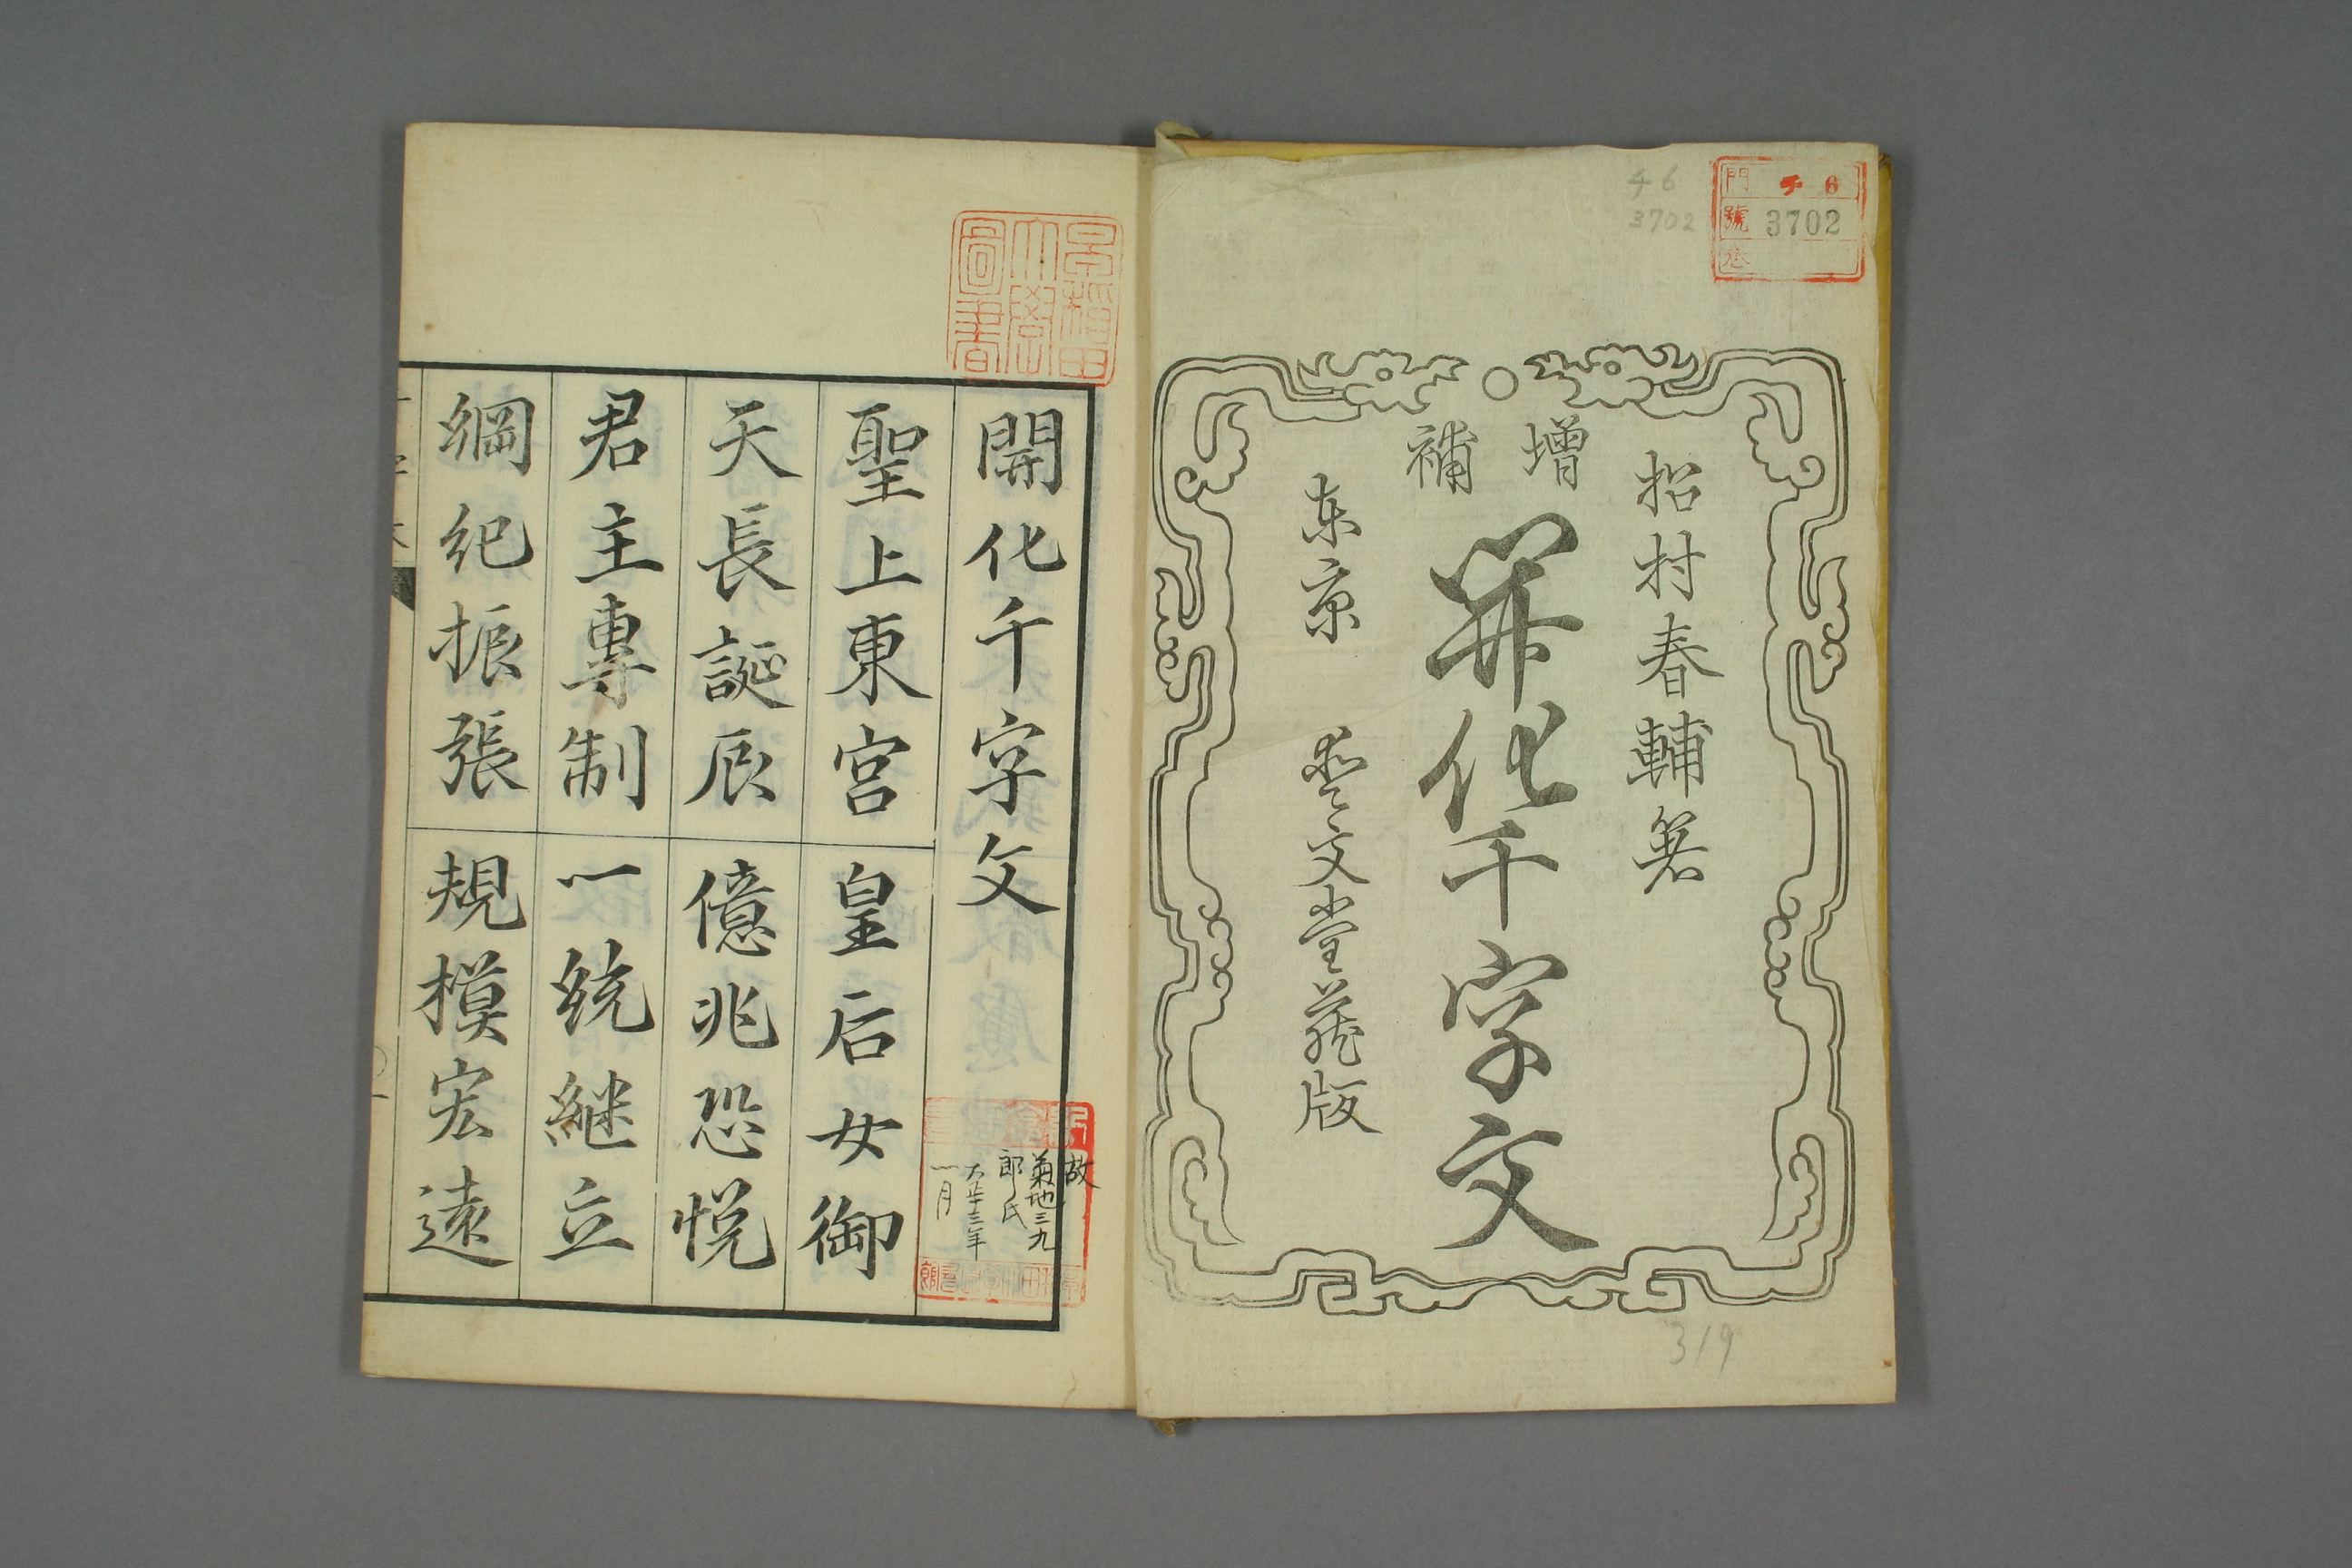 門 チ 6
號 3702
卷
チ6
3702
松村春輔著
增補
開化千字文
东京 文堂藏版
319
早稲田
大學
圖書
開化千字文
聖上東宮 皇后女御
天長誕辰 億兆恐悦
君主專制 一統継立
綱紀振張 規模宏遠
故
菊地三九
郎氏
大正十三年
一月